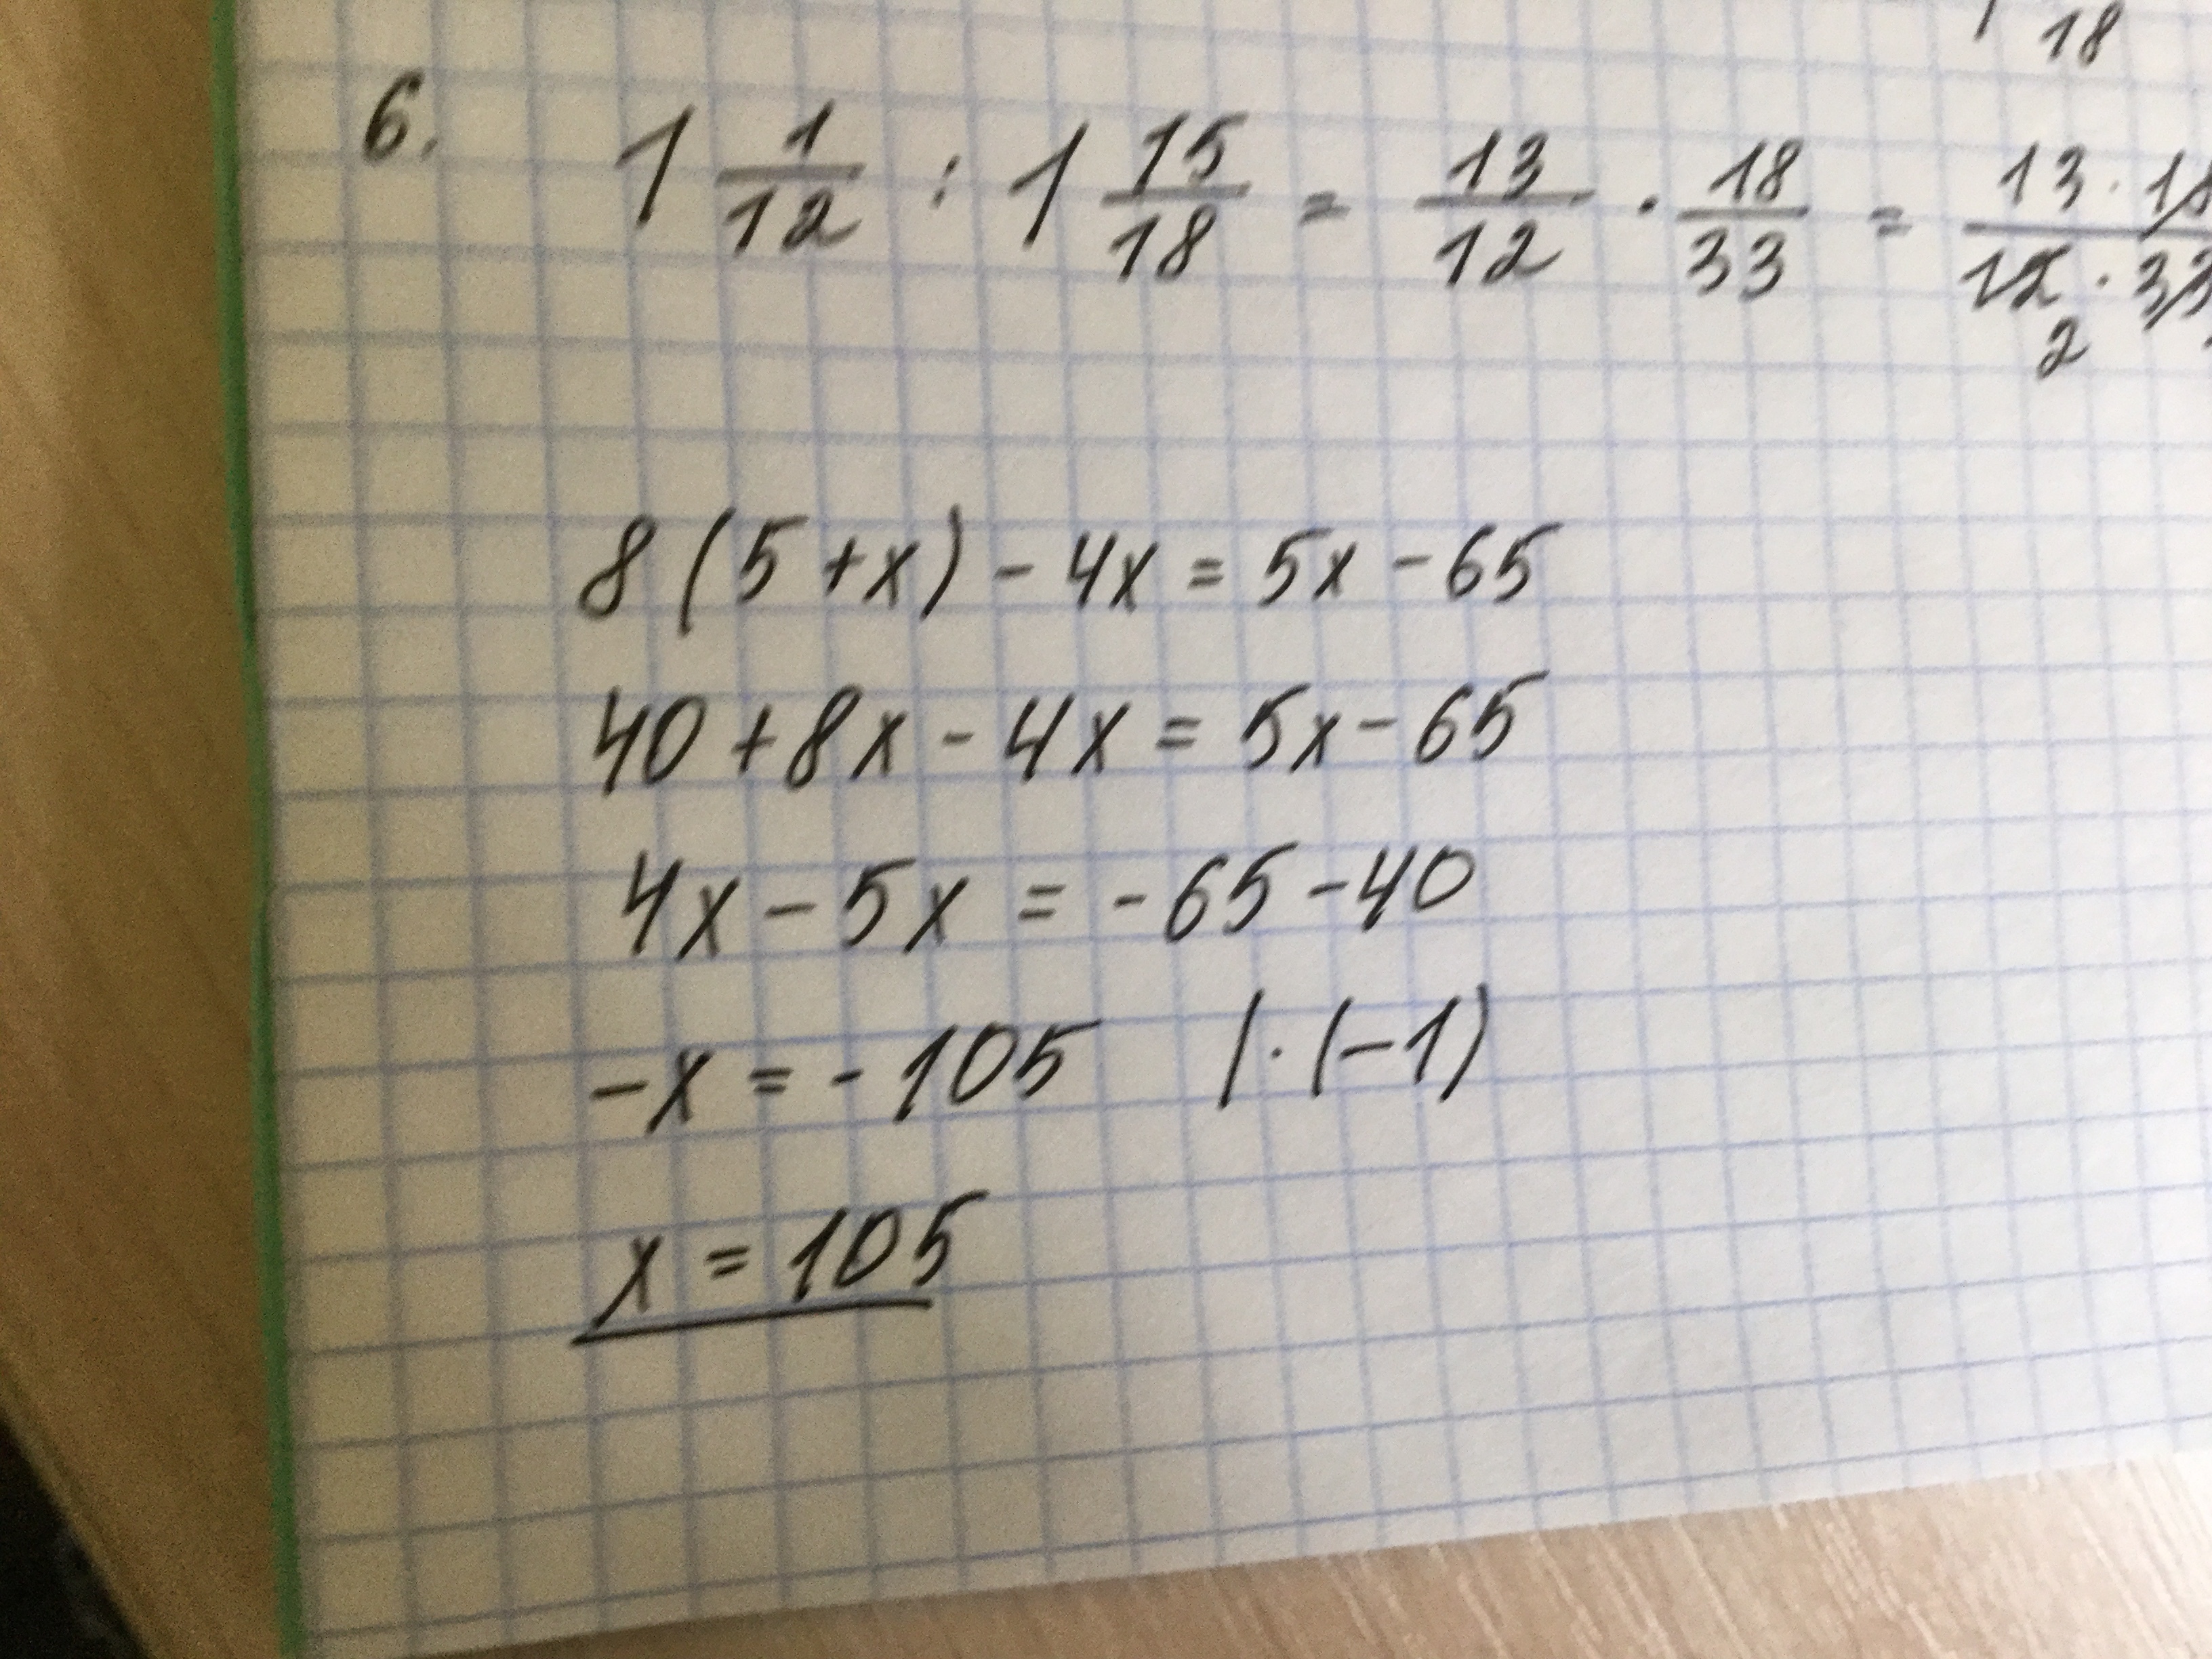 18
6. 1 1/12 : 1 15/18 = 13/12 · 18/33 = 13 · 18/12 · 33
2
8(5+x) - 4x = 5x - 65
40 + 8x - 4x = 5x - 65
4x - 5x = -65 - 40
-x = -105 | · (-1)
x = 105